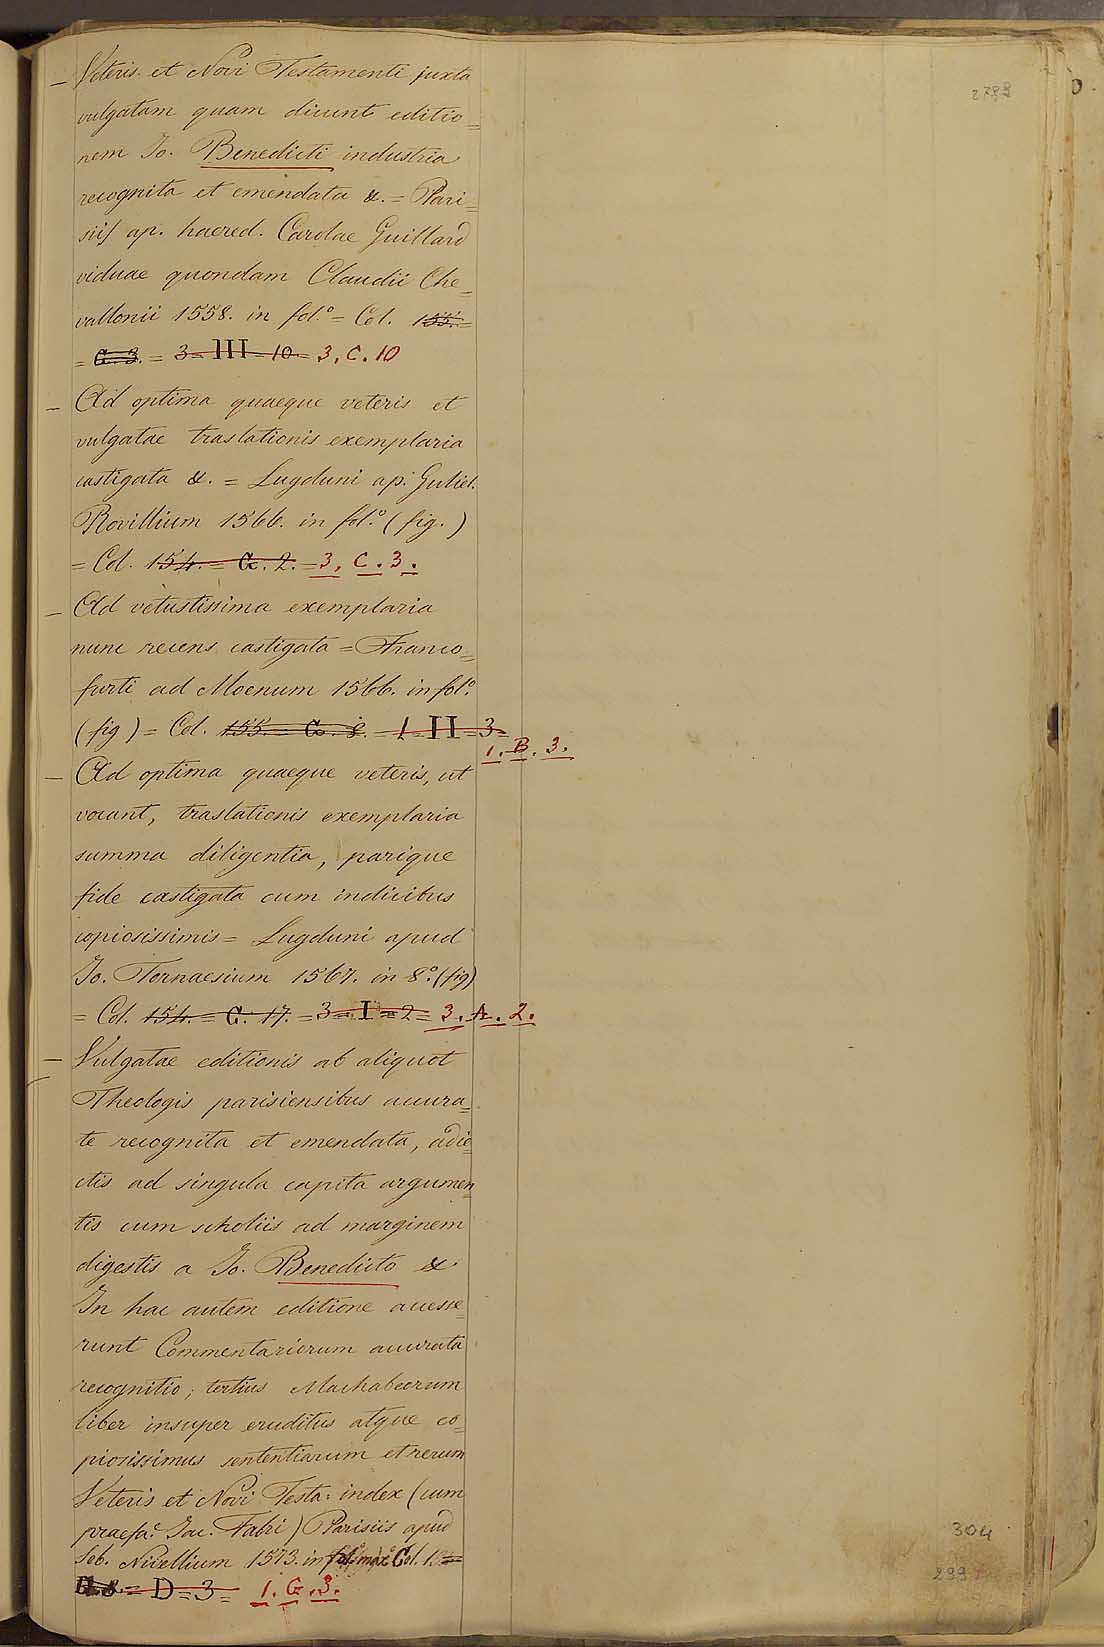 2789
– Veteris et Novi Testamenti juxta
vulgatam quam dicunt editio=
nem Jo. Benedicti industria
recognita et emendata &. = Pari=
siis ap. haered. Carolae Guillard
viduae quondam Claudii Che=
vallonii 1558. in fol.º = Col. 155. =
= G. 3. = 3 = III = 10 = 3. C. 10
– Ad optima quaeque veteris et
vulgatae traslationis exemplaria
castigata &. = Lugduni ap. Guliel.
Rovillium 1566. in fol.º (fig.)
= Col. 154. = G. 2. = 3. C. 3.
– Ad vetustissima exemplaria
nunc recens castigata = Franco=
furti ad Moenum 1566. in fol.º
(fig) = Col. 155. = G. 8. = 1 = II = 3 =
1. B. 3.
– Ad optima quaeque veteris, ut
vocant, traslationis exemplaria
summa diligentia, parique
fide castigata cum indicibus
copiosissimis = Lugduni apud
Jo. Tornaesium 1567. in 8.º (fig)
= Col. 154. = G. 17. = 3 = I = 2 = 3. A. 2.
– Vulgatae editionis ab aliquot
Theologis parisiensibus accura=
te recognita et emendata, adie=
ctis ad singula capita argumen=
tis cum scholiis ad marginem
digestis a Jo. Benedicto &
In hac autem editione accesse=
runt Commentariorum accurata
recognitio; tertius Machabeorum
liber insuper eruditus atque co=
piosissimus sententiarum et rerum
Veteris et Novi Testa: index (cum
praefa.e Jac. Fabri) Parisiis apud
Seb. Nivellium 1573. in fol. max.º Col. 1. =
= D = 3 = 1. G. 3.
304
299